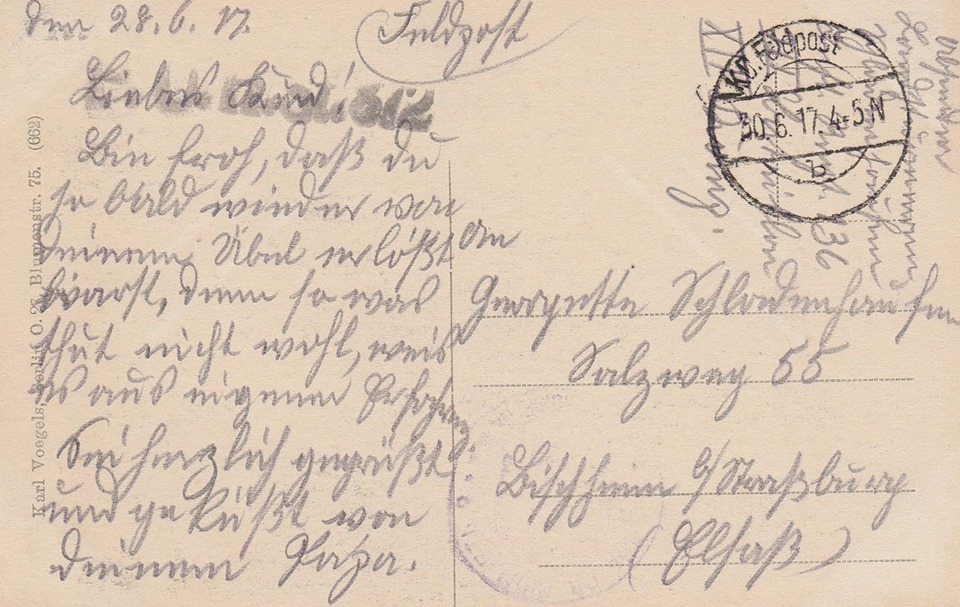 den 28.6.17.
Feldpost
Liebes Kind!
Bin froh, daß du
so bald wieder von
deinem Übel erlößt
warst, denn so was
thut nicht wohl, weis
es aus eigener Erfahrung.
Sei herzlich gegrüßt
und geküßt von
deinem Papa.
An
Georgette Schladenhaufen
Salzweg 55
Bischheim b/Straßburg
(Elsaß)
Absender
XII
K.D. Feldpost
30.6.17. 4-5N
b
Karl Voegels, Berlin O. 27, Blumenstr. 75. (662)